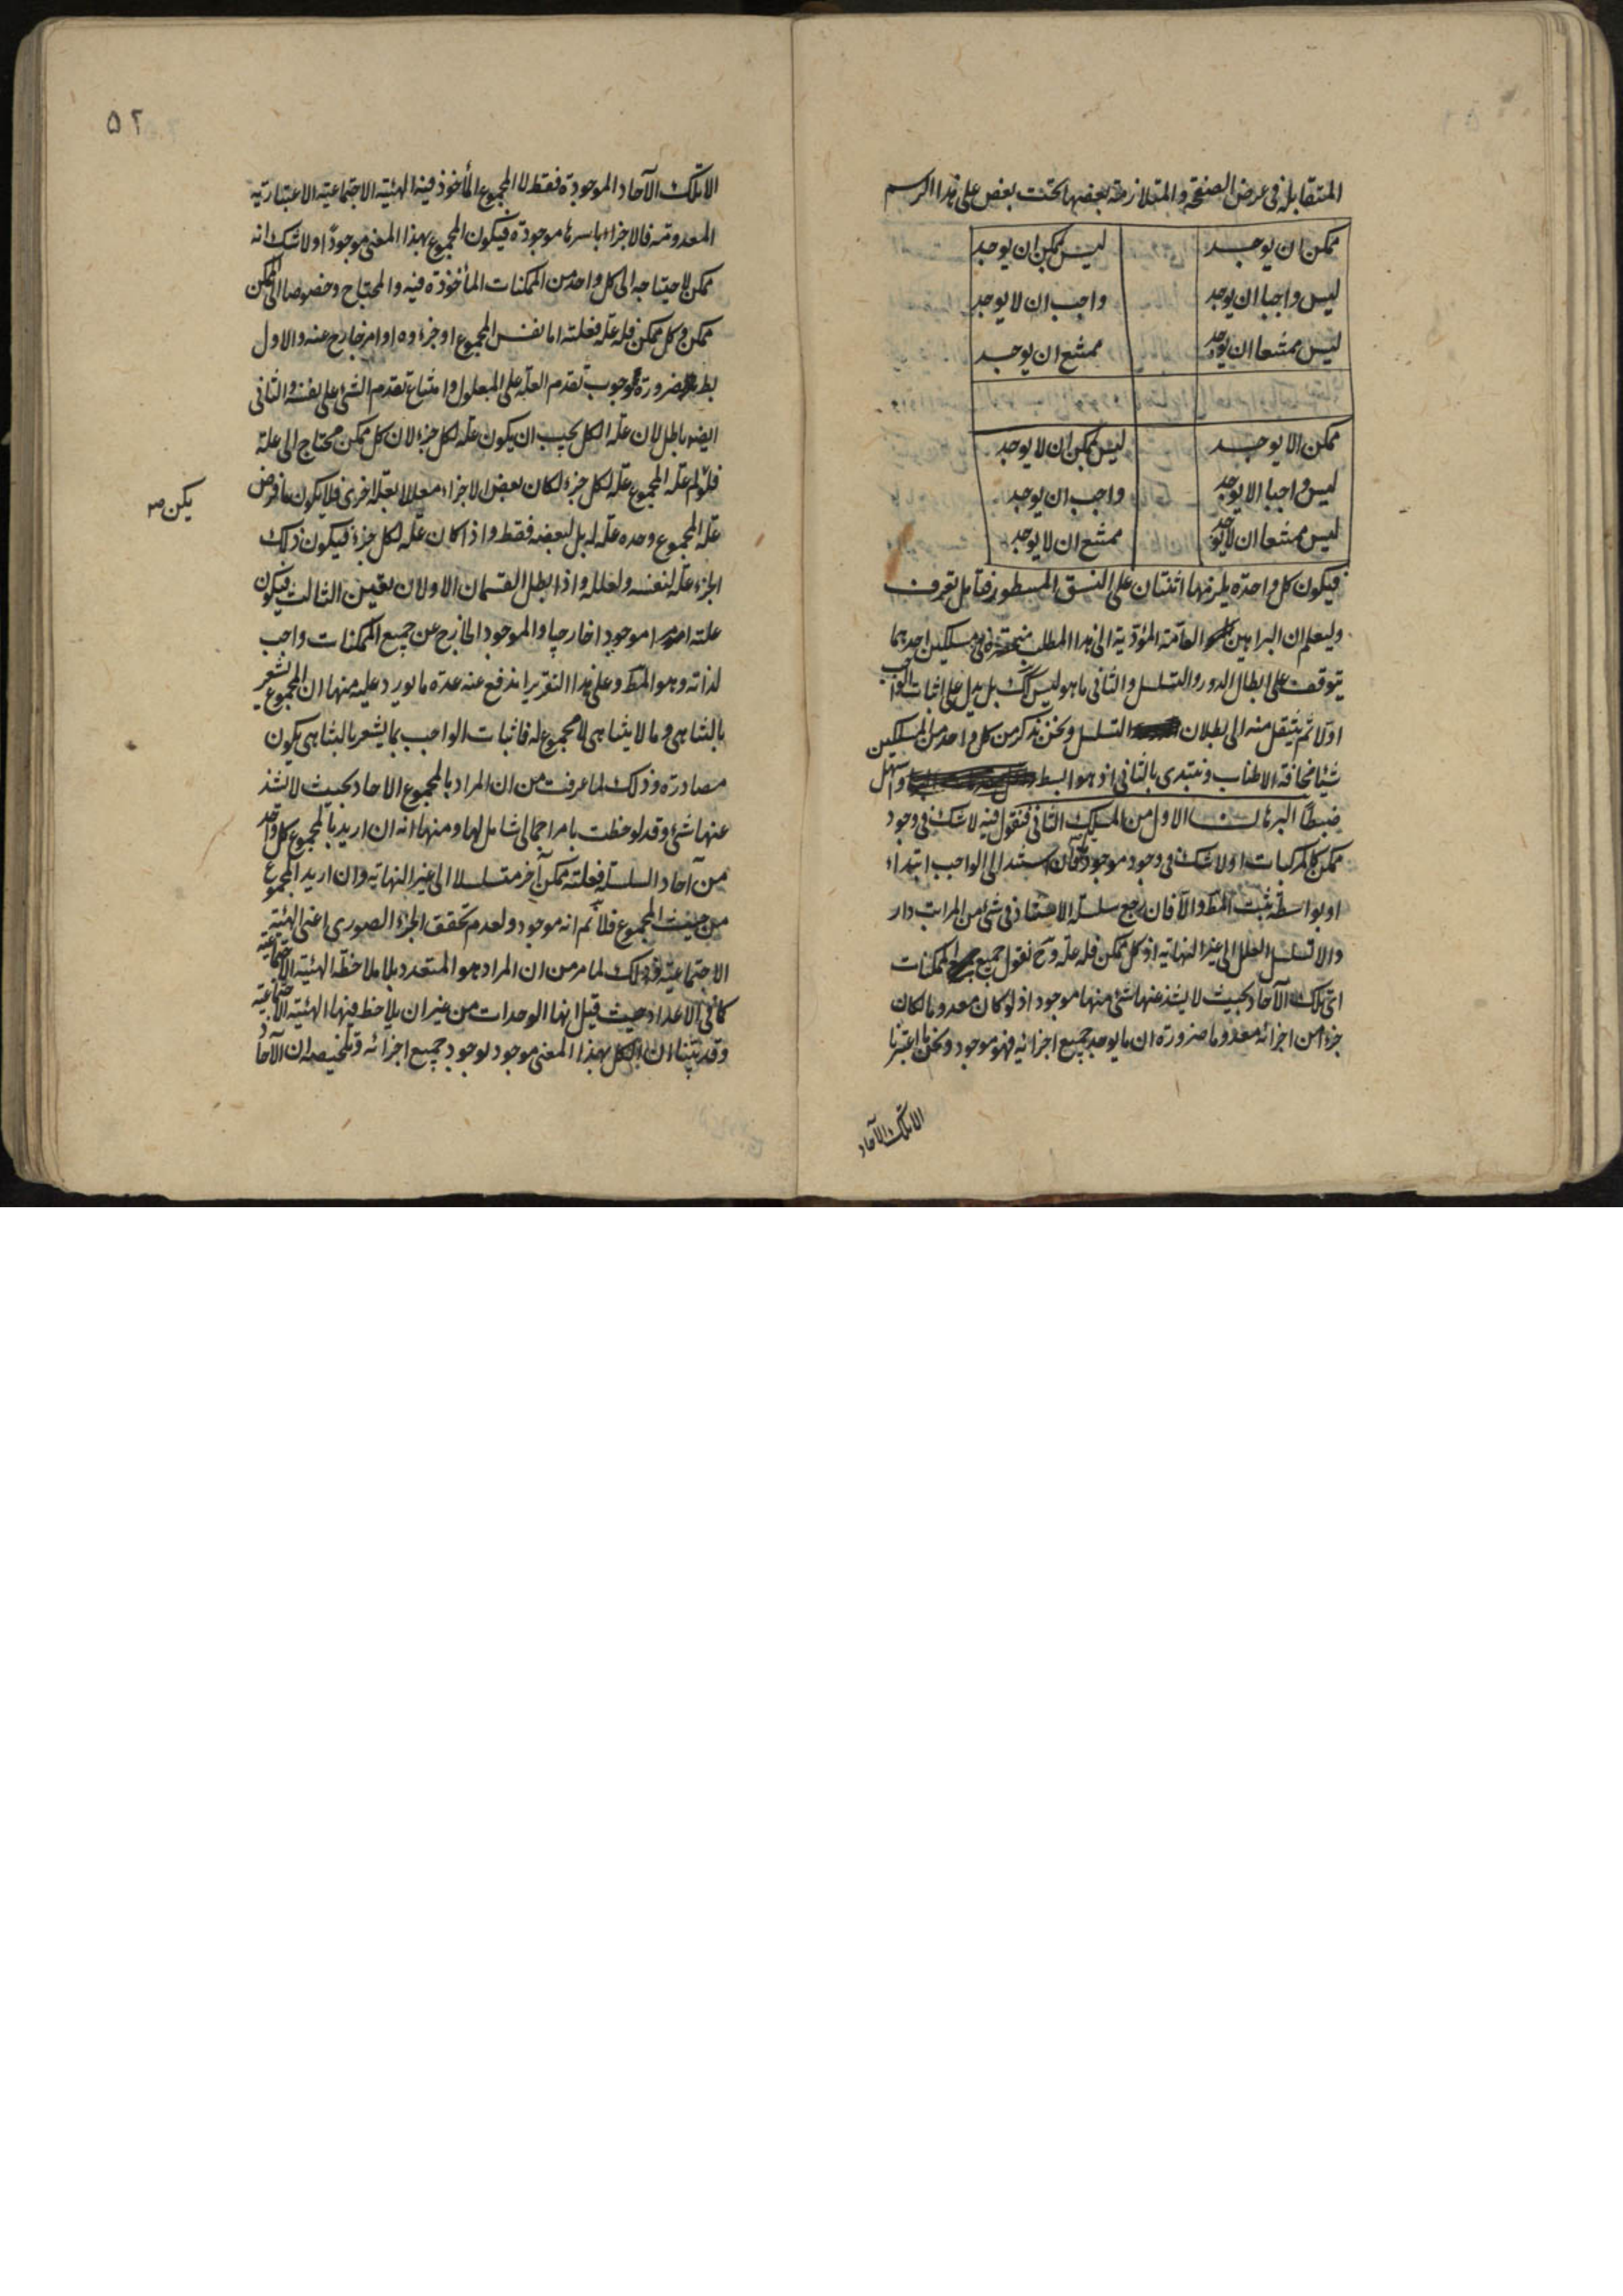 المتقابلة في عرض الصفحة والمتلازمة بعضها تحت بعض على هذا الرسم
ممكن ان يوجد ليس ممكن ان يوجد
ليس واجبا ان يوجد واجب ان لا يوجد
ليس ممتنعا ان يوجد ممتنع ان يوجد
ممكن الا يوجد ليس ممكن ان لا يوجد
ليس واجبا الا يوجد واجب ان يوجد
ليس ممتنعا ان لا يوجد ممتنع ان لا يوجد
فيكون كل واحدة يلزمها اثنتان على النسق المسطور فتأمل تعرف
وليعلم ان البراهين العامة المؤدية الى هذا المطلب منحصرة في مسلكين احدهما
يتوقف على ابطال الدور والتسلسل والثاني ما هو ليس كك بل يدل على اثبات الواجب
اولا ثم ينتقل منه الى بطلان التسلسل ونحن نذكر من كل واحد من المسلكين
شيئا مخافة الاطناب ونبتدى بالثاني اذ هو ابسط واسهل
ضبطا البرهان الاول من المسلك الثاني فنقول فيه لا شك في وجود
ممكن كالمركبات اولا شك في وجود موجود فان استند الى الواجب ابتداء
او بواسطة ثبت المط والا فان رجع سلسلة الاستناد في شئ من المراتب دار
والا تسلسل العلل الى غير النهاية اذ كل ممكن فله علة وح نقول جميع الممكنات
اى تلك الآحاد بحيث لا يشذ عنها شئ منها موجود اذ لو كان معدوما لكان
جزء من اجزائه معدوما ضرورة ان ما يوجد جميع اجزائه فهو موجود ونحن ما اعتبرنا
الا تلك الآحاد
٥٢
الا تلك الآحاد الموجودة فقط لا المجموع المأخوذ فيه الهيئة الاجتماعية الاعتبارية
المعدومة فالاجزاء باسرها موجودة فيكون المجموع بهذا المعنى موجودا ولا شك انه
ممكن لاحتياجه الى كل واحد من الممكنات المأخوذة فيه والمحتاج وخصوصا الى الممكن
ممكن وكل ممكن فله علة فعلته اما نفس المجموع او جزءه او امر خارج عنه والاول
بط ضرورة وجوب تقدم العلة على المعلول وامتناع تقدم الشئ على نفسه والثاني
ايضا باطل لان علة الكل يجب ان يكون علة لكل جزء لان كل ممكن محتاج الى علة
فلو لم علة المجموع علة لكل جزء لكان بعض الاجزاء معللا بعلة اخرى فلا يكون ما فرض
يكن صح
علة المجموع وحده علة له بل لبعضه فقط واذا كان علة لكل جزء فيكون ذلك
الجزء علة لنفسه ولعلله واذا بطل القسمان الاولان تعين الثالث فيكون
علته امرا موجودا خارجيا والموجود الخارج عن جميع الممكنات واجب
لذاته وهو المط وعلى هذا التقرير اندفع عنه عدة ما يورد عليه منها ان المجموع يشعر
بالتناهي وما لا يتناهى لا مجموع له فاثبات الواجب بما يشعر بالتناهي يكون
مصادرة وذلك لما عرفت من ان المراد بالمجموع الاحاد بحيث لا يشذ
عنها شئ وقد لوحظت بامر اجمالي شامل لها ومنها انه ان اريد بالمجموع كل واحد
من آحاد السلسلة فعلته ممكن آخر متسلسلا الى غير النهاية وان اريد المجموع
من حيث المجموع فلا نم انه موجود ولعدم تحقق الجزء الصوري اعني الهيئة
الاجتماعية وذلك لما مر من ان المراد هو المتعدد بلا ملاحظة الهيئة الاجتماعية
كما في الاعداد حيث قيل انها الوحدات من غير ان يلاحظ فيها الهيئة الاجتماعية
وقد بينا ان الكل بهذا المعنى موجود لوجود جميع اجزائه وتلخيصه ان الآحاد